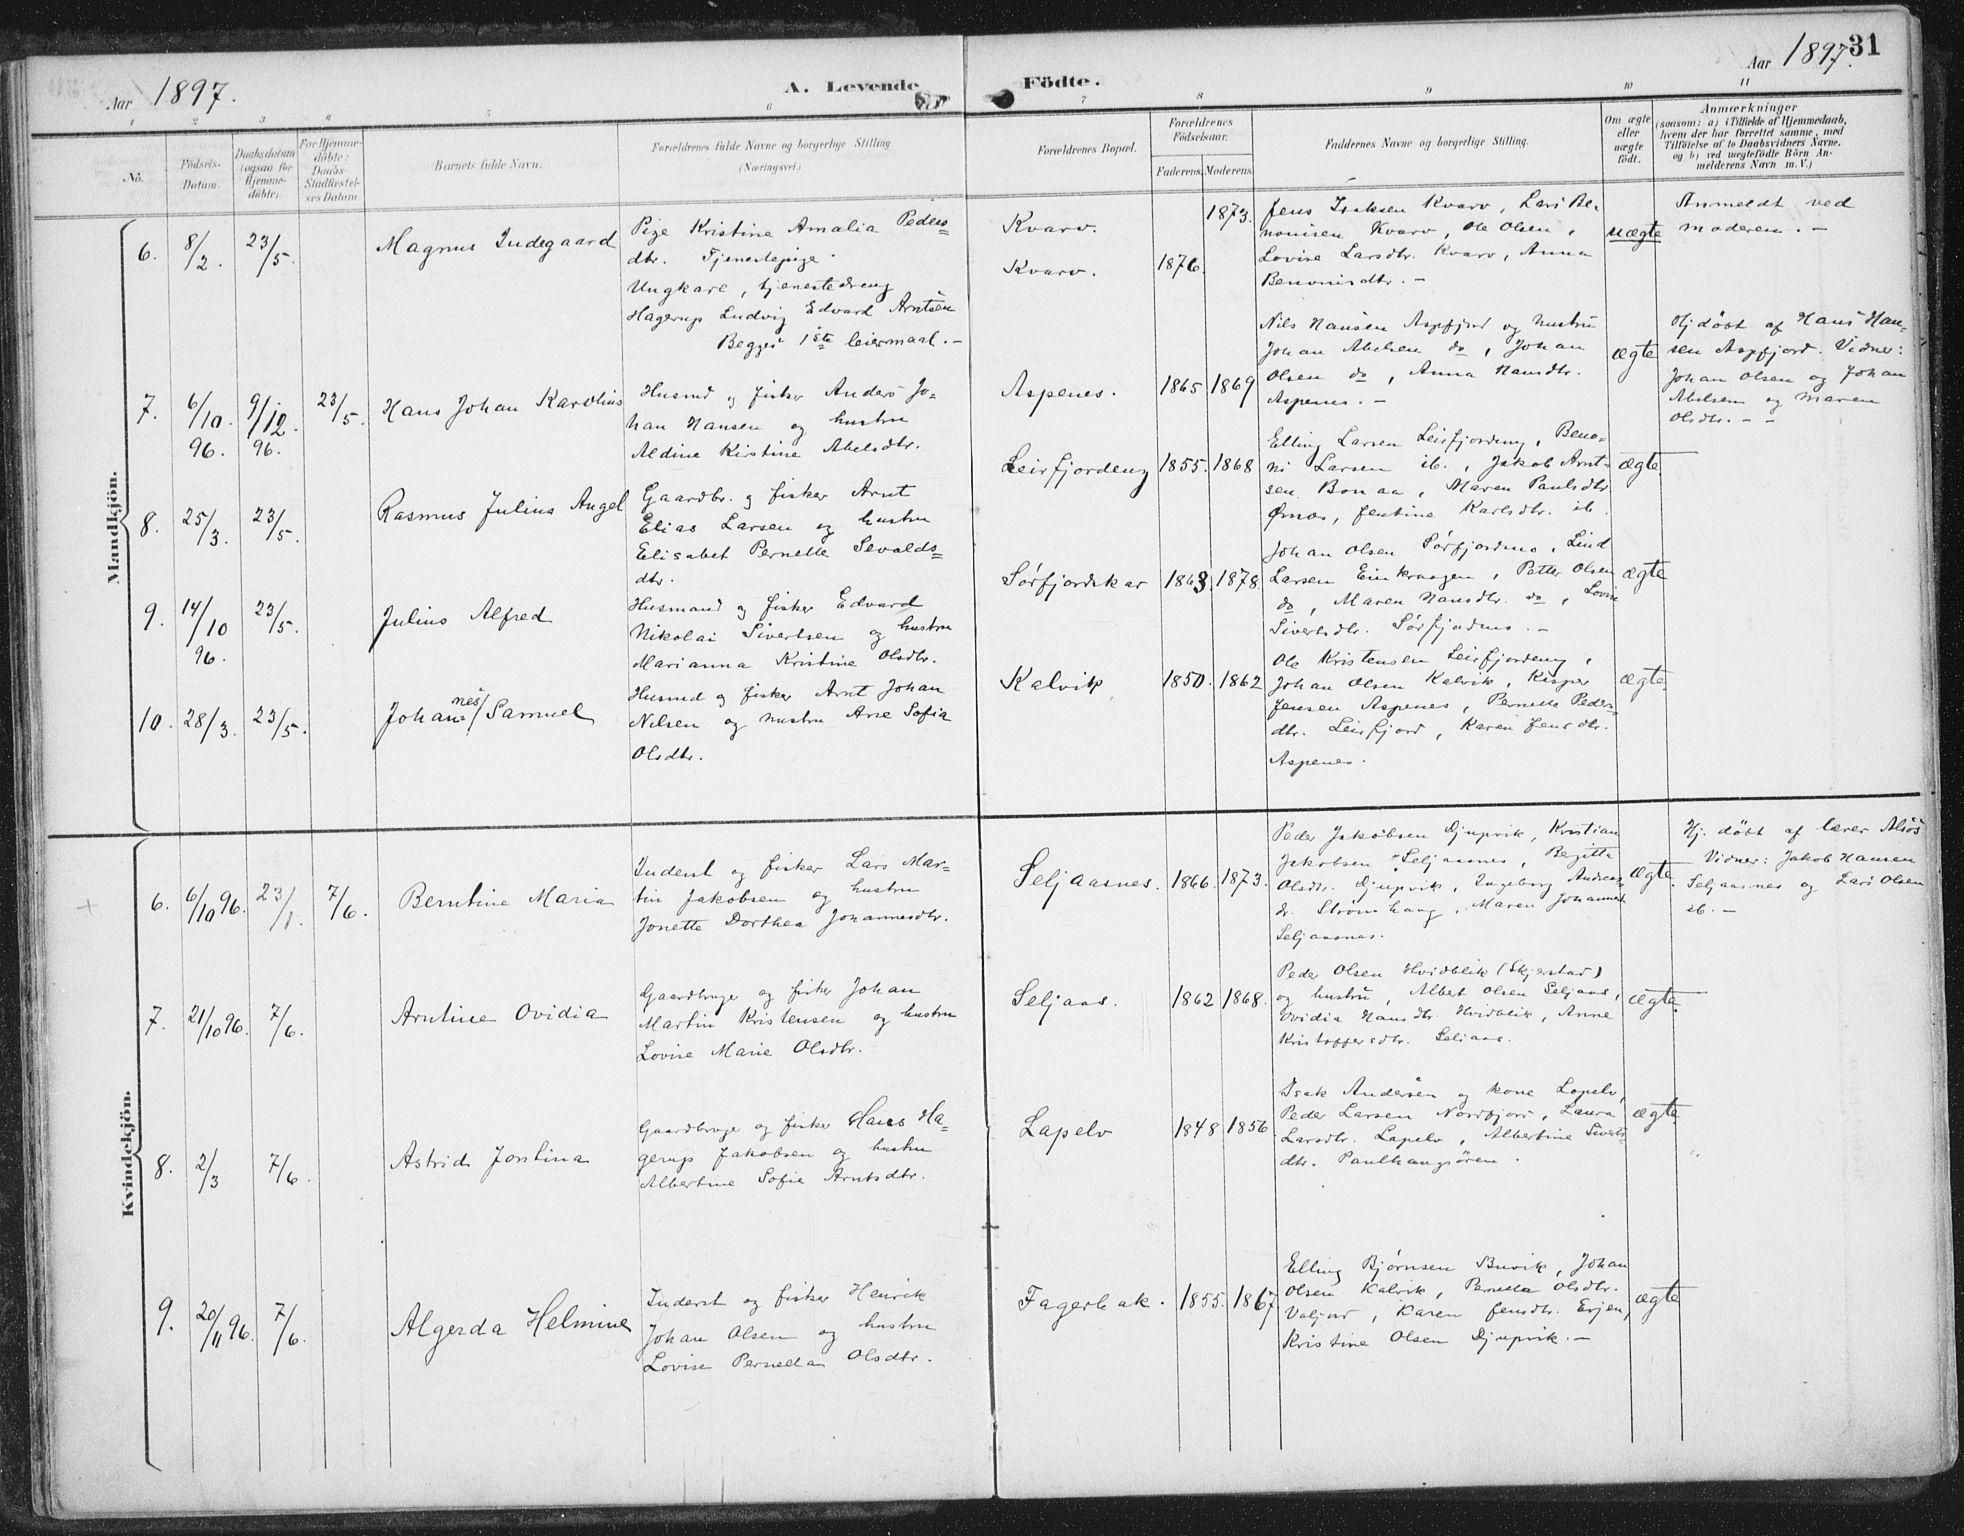 Aar 1897.
A. Levende Födte.
Aar 1897.
31
1 2 3 4 5 6 7 8 9 10 11
No.
Födsels-Datum.
Daabsdatum (ogsaa for Hjemmedöbte).
For Hjemmedöbte: Daabs-Stadfæstelses Datum
Barnets fulde Navn.
Forældrenes fulde Navne og borgerlige Stilling
(Næringsvei)
Forældrenes Bopæl.
Forældrenes Födselsaar.
Faderens. Moderens.
Faddernes Navne og borgerlige Stilling.
Om ægte eller uægte födt.
Anmærkninger
(saasom: a) i Tilfælde af Hjemmedaab, hvem der har forrettet samme, med Tilföielse af to Daabsvidners Navne, og b) ved uægtefödte Börn Anmelderens Navn m. V.)
Mandkjön.
6. 8/2. 23/5. Magnus Indegaard
Pige Kristine Amalia Peders=
dtr. Tjenestepige.
Ungkare, tjenestedreng
Hagerup Ludvig Edvard Arntsen
Begges 1ste leiermaal. -
Kvarv. 1873.
Kvarv. 1876.
Jens Isaksen Kvarv, Lars Be-
nonisen Kvarv, Ole Olsen,
Lovise Larsdtr. Kvarv, Anna
Benonisdtr. -
uægte
Anmeldt ved
moderen. -
7. 6/10. 96. 9/12. 96. 23/5. Hans Johan Karolius
Husmd og fisker Anders Jo-
han Hansen og hustru
Aldine Kirstine Abelsdtr.
Aspenes. 1865 1869
Nils Hansen Aspfjord og hustru
Johan Abelsen do, Johan
Olsen do, Anna Hansdtr.
Aspenes. -
ægte
Hj. döbt af Hans Han-
sen Aspfjord. Vidner:
Johan Olsen og Johan
Abelsen og Maren
Olsdtr. - -
8. 25/3. 23/5. Rasmus Julius Angel
Gaardbr. og fisker Arnt
Elias Larsen og hustru
Elisabet Pernelle Sevalds=
dtr.
Leirfjordeng 1855. 1868
Elling Larsen Leirfjordeng, Beno-
ni Larsen ib., Jakob Arnt-
sen Bonaa, Maren Paulsdtr.
Ørnes, Jentine Karlsdtr. ib.
ægte.
9. 14/10 96. 23/5. Julius Alfred
Husmand og fisker Edvard
Nikolai Sivertsen og hustru
Marianna Kristine Olsdtr.
Sørfjordskar 1863. 1878.
Johan Olsen Sørfjordmo, Lind
Larsen Einkroogen, Petter Olsen
do, Maren Hansdtr. do, Lovise
Sivertsdtr. Sørfjordmo. -
ægte
10. 28/3. 23/5. Johannes/ Samuel
Husmd og fisker Arnt Johan
Nilsen og hustru Ane Sofia
Olsdtr.
Kalvik 1850. 1862
Ole Kristensen Leirfjordeng,
Johan Olsen Kalvik, Kasper
Jensen Aspenes, Pernelle Peders-
dtr. Leirfjord, Karen Jensdtr.
Aspenes.
ægte.
Kvindekjön.
6. 6/10 96. 23/1. 7/6. Berntine Maria
Inderst og fisker Lars Mar-
tin Jakobsen og hustru
Jonette Dorthea Johannesdtr.
Seljaasnes. 1866. 1873.
Peder Jakobsen Djupvik, Kristian
Jakobsen Seljaasnes, Begitta
Olsdtr. Djupvik, Ingeborg Andreas
dr. Strømhaug, Maren Johannesd
Seljaasnes.
ægte.
Hj. döbt af lærer Alsøs
Vidner: Jakob Hansen
Seljaasnes og Lars Olsen
ib. -
7. 21/10 96. 7/6. Arntine Ovidia
Gaardbruge og fisker Johan
Martin Kristensen og hustru
Lovise Marie Olsdtr.
Seljaas. 1862 1868.
Peder Olsen Hvidblik (Skjerstad)
og hustru, Albert Olsen Seljaas,
Ovidia Hansdtr. Hvidblik, Anne
Kristoffersdtr. Seljaas.
ægte.
8. 2/3 7/6. Astrid Jontina
Gaardbruge og fisker Hans Ha=
gerup Jakobsen og hustru
Albertine Sofie Arntsdtr.
Lapelv 1848 1856
Isak Andersen og kone Lapelv,
Peder Larsen Nordfjord, Laura
Larsdtr. Lapelv, Albertine Siverts-
dtr. Paulhaugsören.
ægte
9. 20/11 96. 7/6. Algerda Helmine
Inderst og fisker Henrik
Johan Olsen og hustru
Lovise Pernella Olsdtr.
Fagerbak. 1855. 1867
Elling Bjørnsen Buvik, Johan
Olsen Kalvik, Pernella Olsdtr.
Valjord, Karen Jensdtr. Evjen,
Kristine Olsen Djupvik. -
ægte